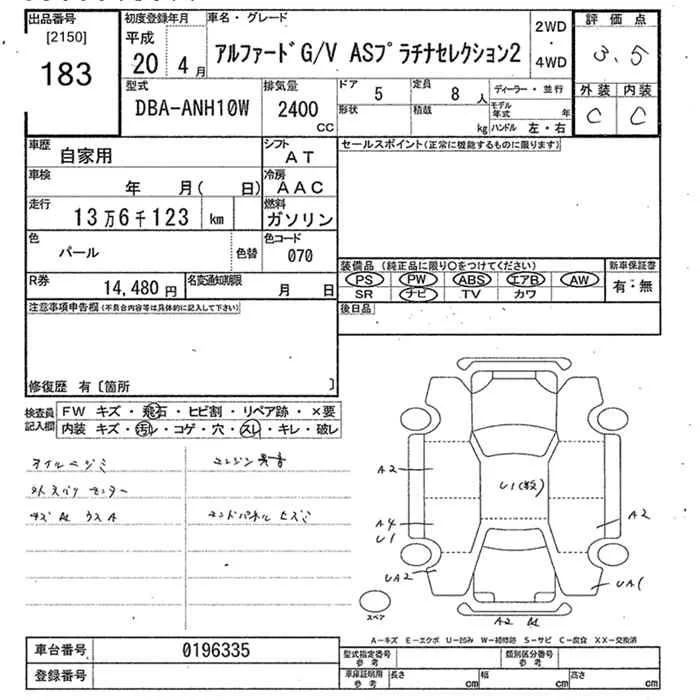 出品番号
[2150]
183
初度登録年月
平成
20 4月
車名・グレード
アルファードG/V ASプラチナセレクション2
2WD
・
4WD
評価点
3.5
外装 内装
C C
型式
DBA-ANH10W
排気量
2400
cc
ドア 5
定員 8人
形状
積載 kg
ディーラー・並行
モデル年式 年
ハンドル 左・右
車歴
自家用
シフト
AT
車検
年 月( 日)
冷房
AAC
走行
13万6千123 km
燃料
ガソリン
色
パール
色替
色コード
070
R券
14,480円
名変通知期限
月 日
セールスポイント(正常に機能するものに限ります)
装備品 (純正品に限り○をつけてください)
PS PW ABS エアB AW
SR ナビ TV カワ
新車保証書
有・無
後日品
注意事項申告欄(不具合内容等は具体的に記入して下さい)
修復歴 有〔箇所 〕
検査員
記入欄
FW キズ・飛石・ヒビ割・リペア跡・×要
内装 キズ・汚レ・コゲ・穴・スレ・キレ・破レ
オイルニジミ
エンジン異音
エンドパネル ヒズミ
A2
A4
U1
U1(数)
A2
UA2
UA1
A2
スペア
A-キズ E-エクボ U-凹み W-補修跡 S-サビ C-腐食 XX-交換済
車台番号
0196335
登録番号
型式指定番号
参考
類別区分番号
参考
車庫証明用
参考
長さ cm
幅 cm
高さ cm